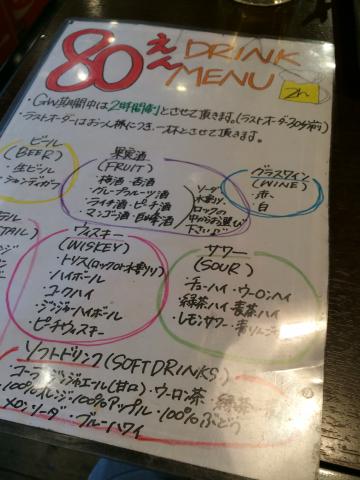 80えん DRINK
MENU
・GW期間中は2時間制とさせて頂きます。(ラストオーダー30分前)
・ラストオーダーはお1人様につき、一杯とさせて頂きます。
ビール
(BEER)
・生ビール
・シャンディガフ
果実酒
(FRUIT)
・梅酒・杏酒
・グレープフルーツ酒
・ライチ酒・ピーチ酒
・マンゴー酒・白桃酒
ソーダ
水割り
ロックの
中からお選び
下さい♪
グラスワイン
(WINE)
・赤
・白
ウィスキー
(WISKEY)
・トリス(ロックor水割り)
・ハイボール
・コークハイ
・ジンジャーハイボール
・ピーチウィスキー
サワー
(SOUR)
・チューハイ・ウーロンハイ
・緑茶ハイ 麦茶ハイ
・レモンサワー・青リンゴ
ソフトドリンク(SOFT DRINKS)
・コーラ・ジンジャエール(甘口)・ウーロン茶・緑茶
・100%オレンジ・100%アップル・100%ぶどう
・メロンソーダ・ブルーハワイ